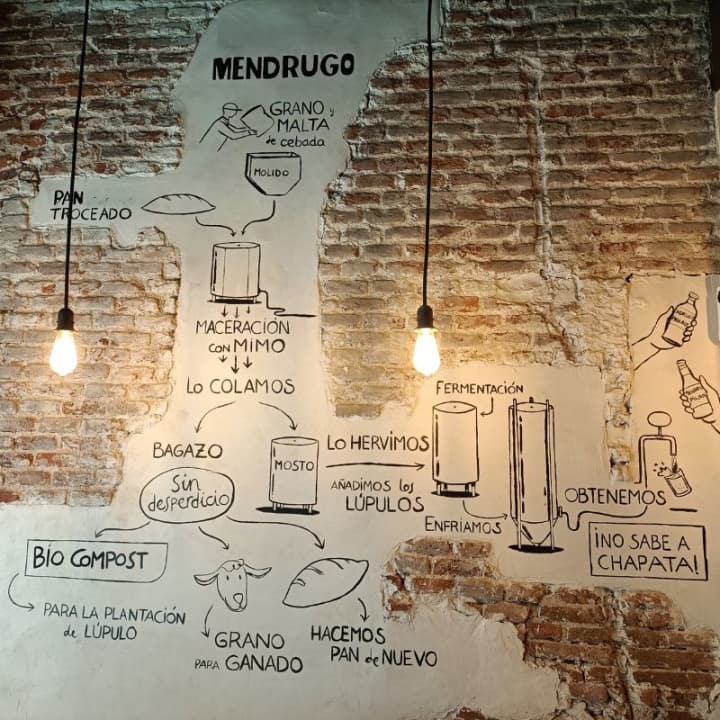 MENDRUGO
GRANO y
MALTA
de cebada
MOLIDO
PAN
TROCEADO
MACERACIÓN
CON MIMO
LO COLAMOS
BAGAZO
Sin
desperdicio
MOSTO
LO HERVIMOS
AÑADIMOS los
LÚPULOS
FERMENTACIÓN
ENFRIAMOS
OBTENEMOS
¡NO SABE A
CHAPATA!
BIO COMPOST
PARA LA PLANTACIÓN
de LÚPULO
GRANO
PARA GANADO
HACEMOS
PAN de NUEVO